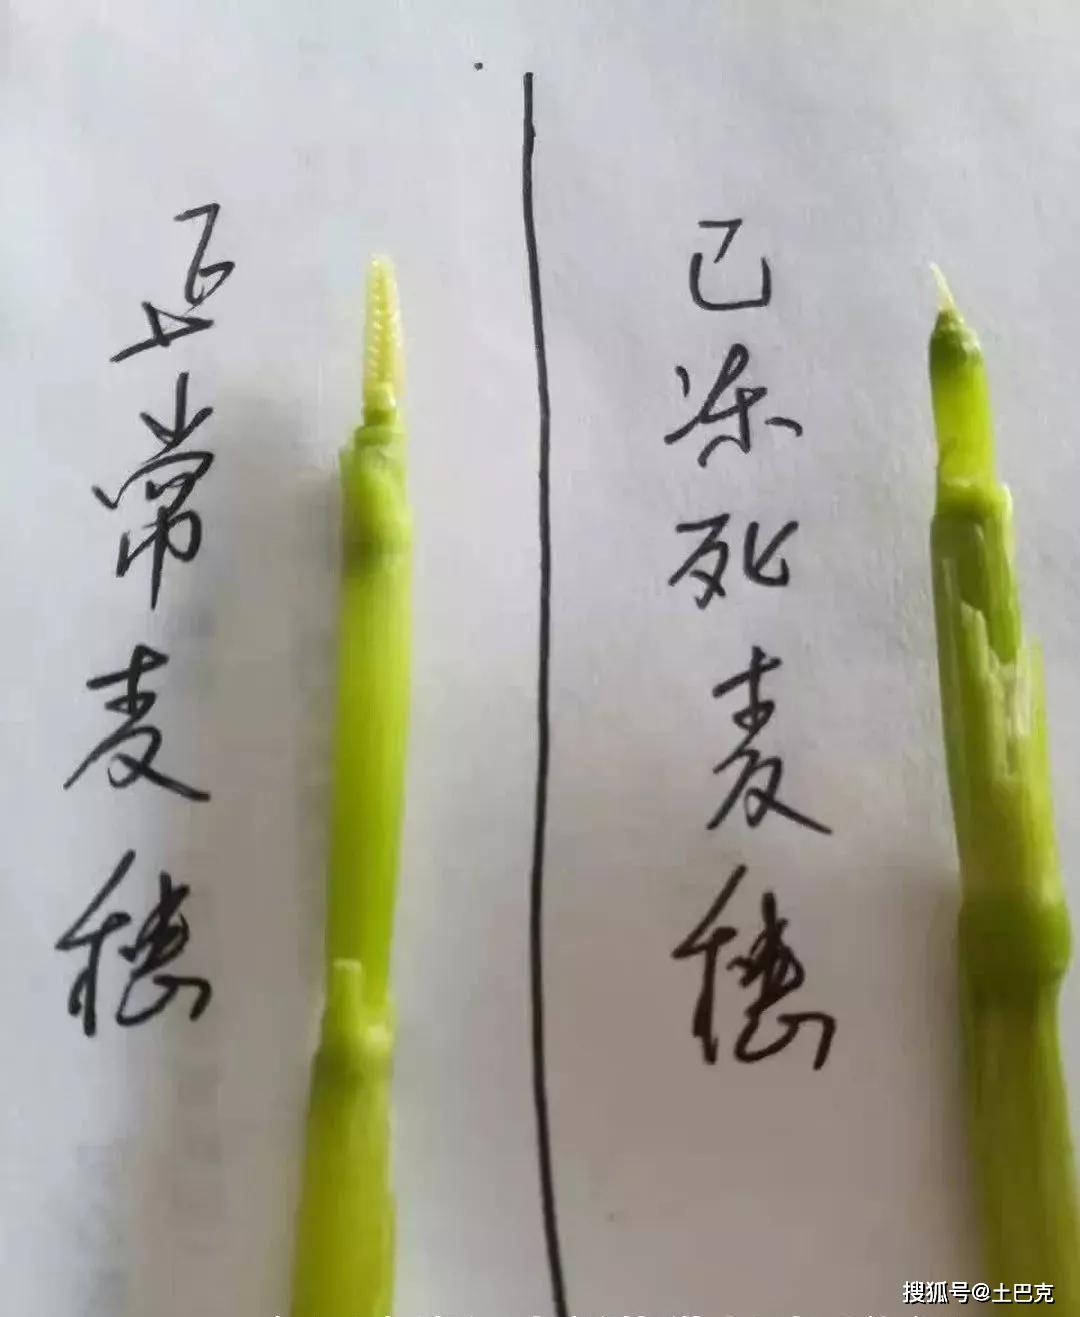 正常麦穗
已冻死麦穗
搜狐号@土巴克